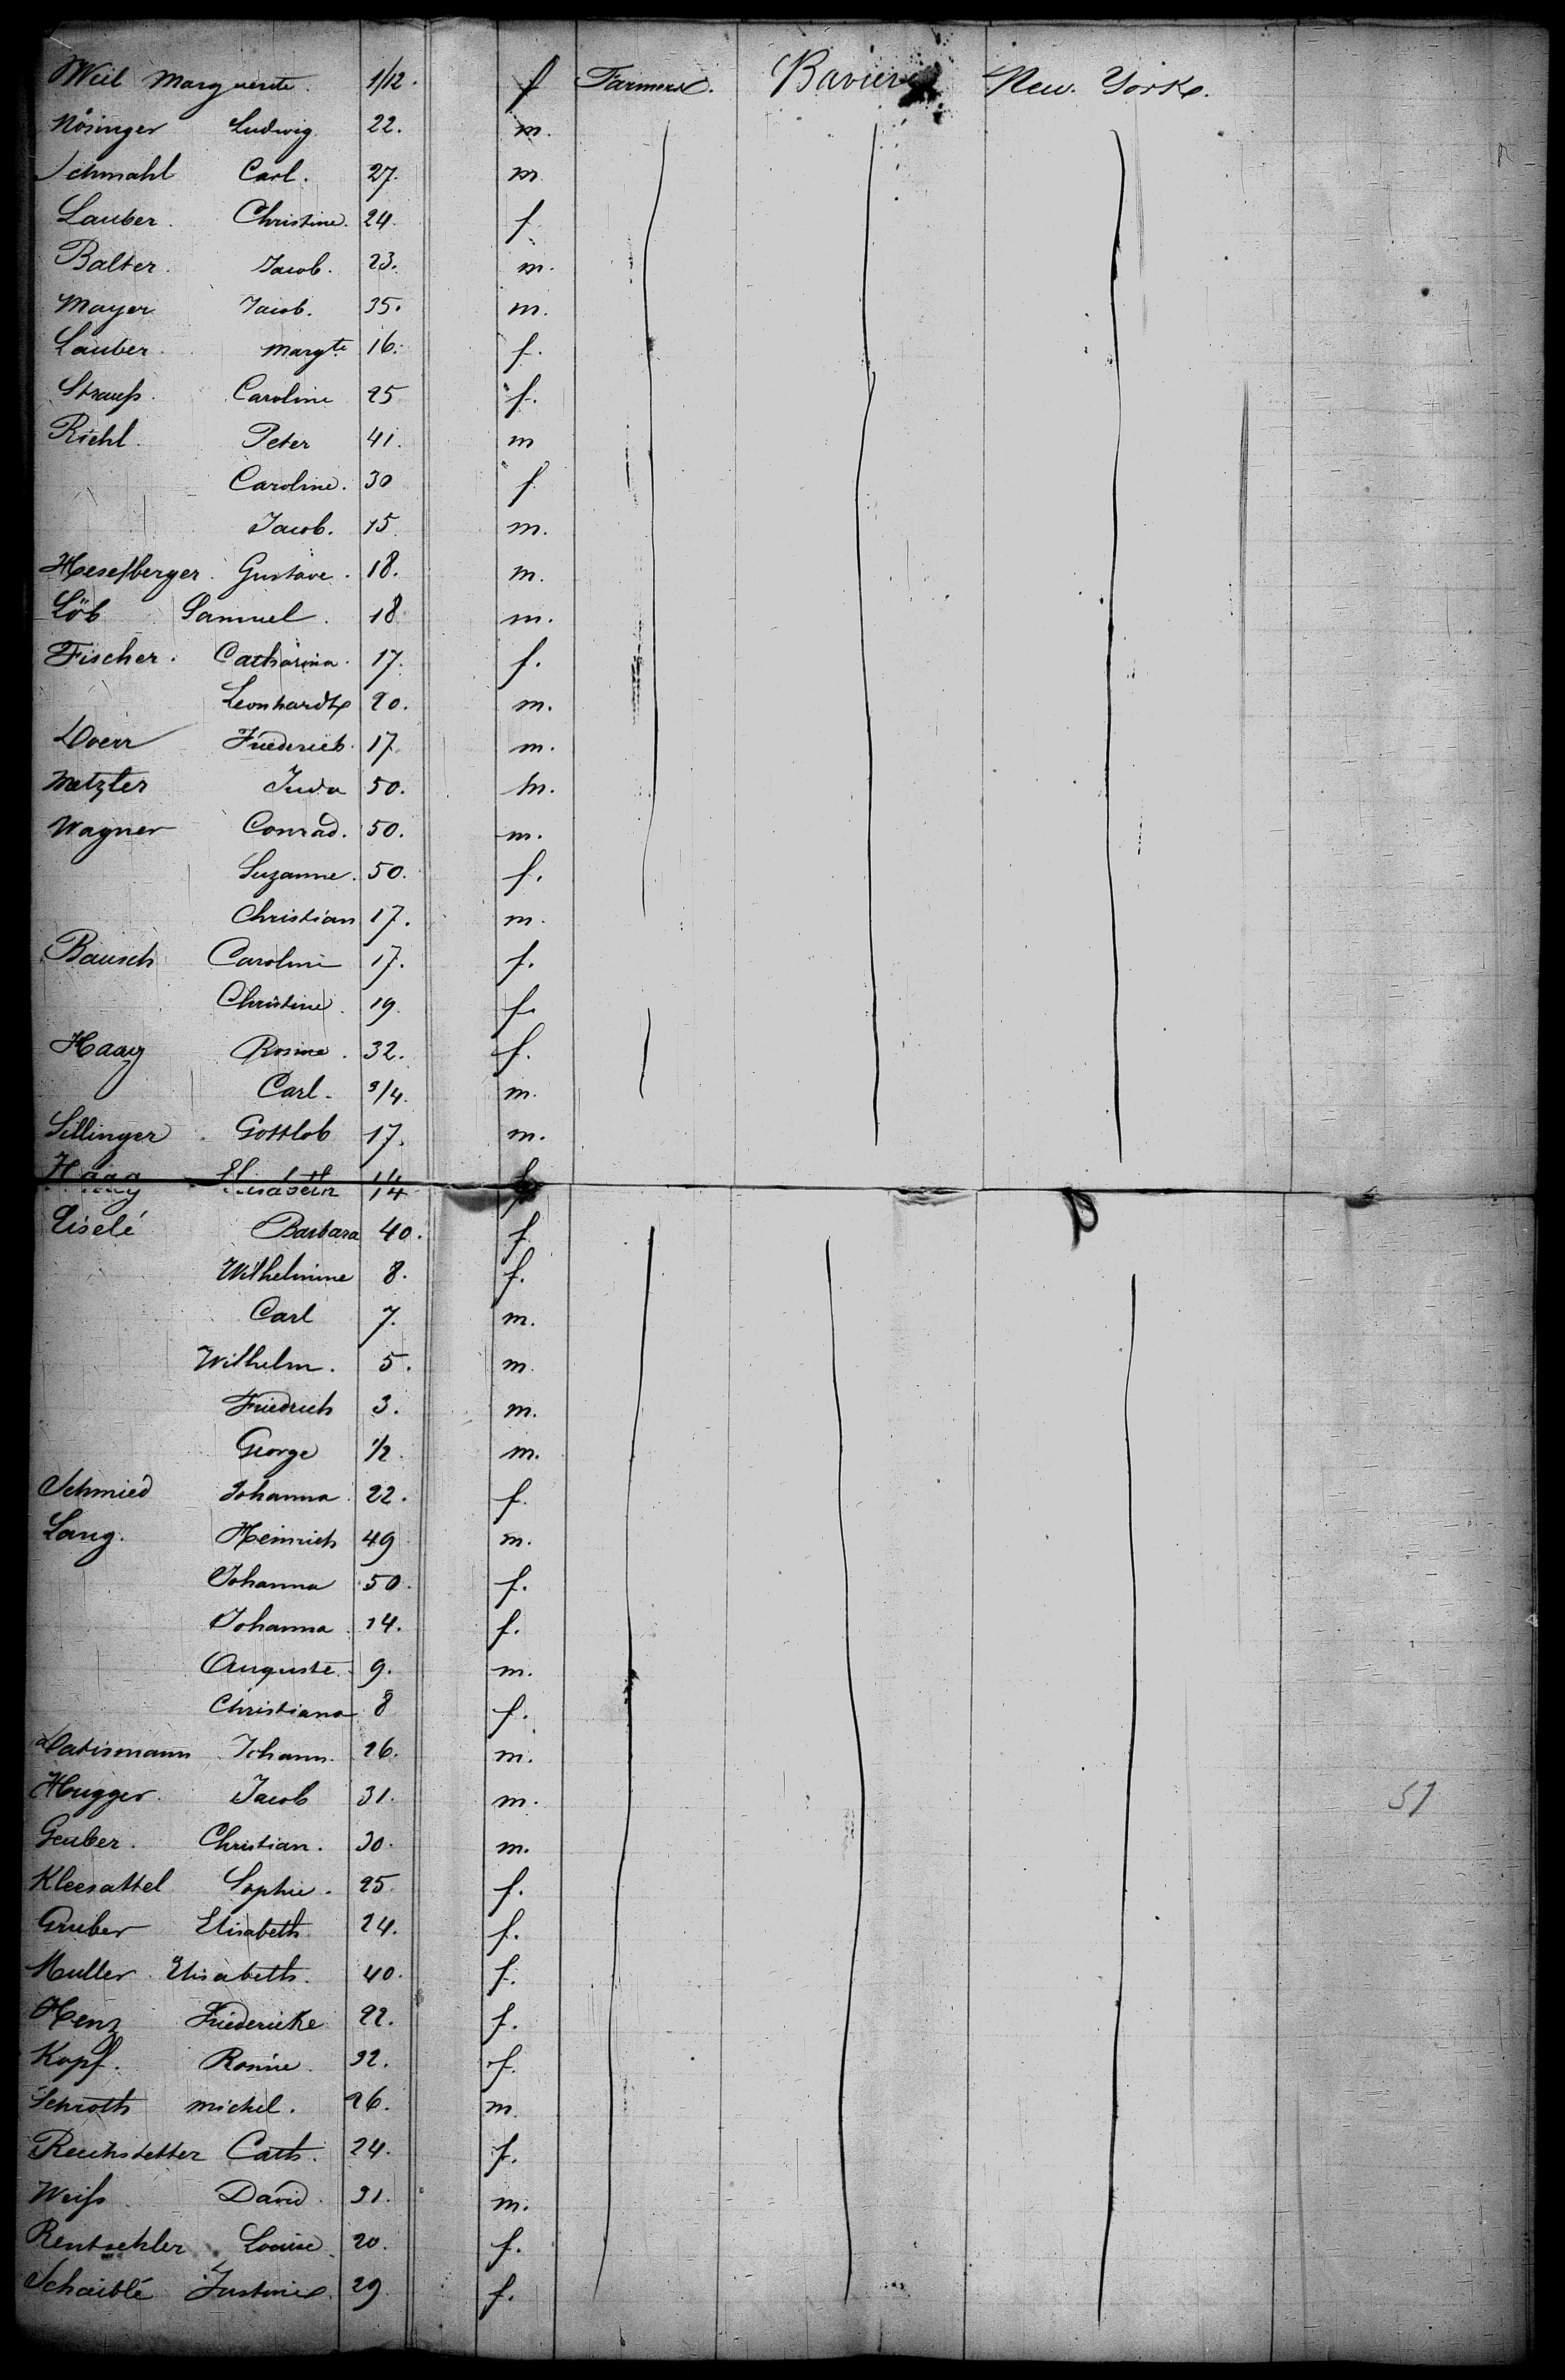 Weil Marguerite. 1/12. f Farmers. Baviere New. York.
Nösinger Ludwig. 22. m.
Schmahl Carl. 27. m
Lauber. Christine. 24. f
Balter. Jacob. 23. m.
Mayer Jacob. 35. m.
Lauber. Margte 16. f.
Strauß. Caroline 25 f.
Riehl. Peter 41. m
Caroline. 30 f
Jacob. 15. m.
Heseßberger. Gustave. 18. m.
Löb Samuel. 18 m.
Fischer. Catharina. 17. f.
Leonhardt 20. m.
Doerr Friederich. 17. m.
Metzler Juda 50. m.
Wagner Conrad. 50. m.
Suzanne. 50. f.
Christian 17. m.
Bausch Caroline 17. f.
Christine. 19. f.
Haag Rosine. 32. f.
Carl. 3/4. m.
Sillinger. Gottlob 17. m.
Haag Elisabeth 14 f
Eiselé Barbara 40. f
Wilhelmine 8. f.
Carl 7. m.
Wilhelm. 5. m.
Friedrich 3. m.
George 1/2. m.
Schmied Johanna. 22. f.
Lang. Heinrich 49 m.
Johanna 50. f.
Johanna. 14. f.
Auguste. 9. m.
Christiana 8 f.
Johann. 26. m.
Hugger. Jacob 31. m.
Gauber. Christian. 30. m.
Kleesattel Sophie. 25. f.
Gruber Elisabeth. 24. f.
Muller. Elisabeth. 40. f.
Henz Friedericke 22. f.
Kopf. Rosine. 32. f.
Schroth Michel. 26. m.
Reichstetter Cath. 24. f.
Weiß David. 31. m.
Rentschler Louise 20. f.
Schaiblé Justine. 29 f.
51